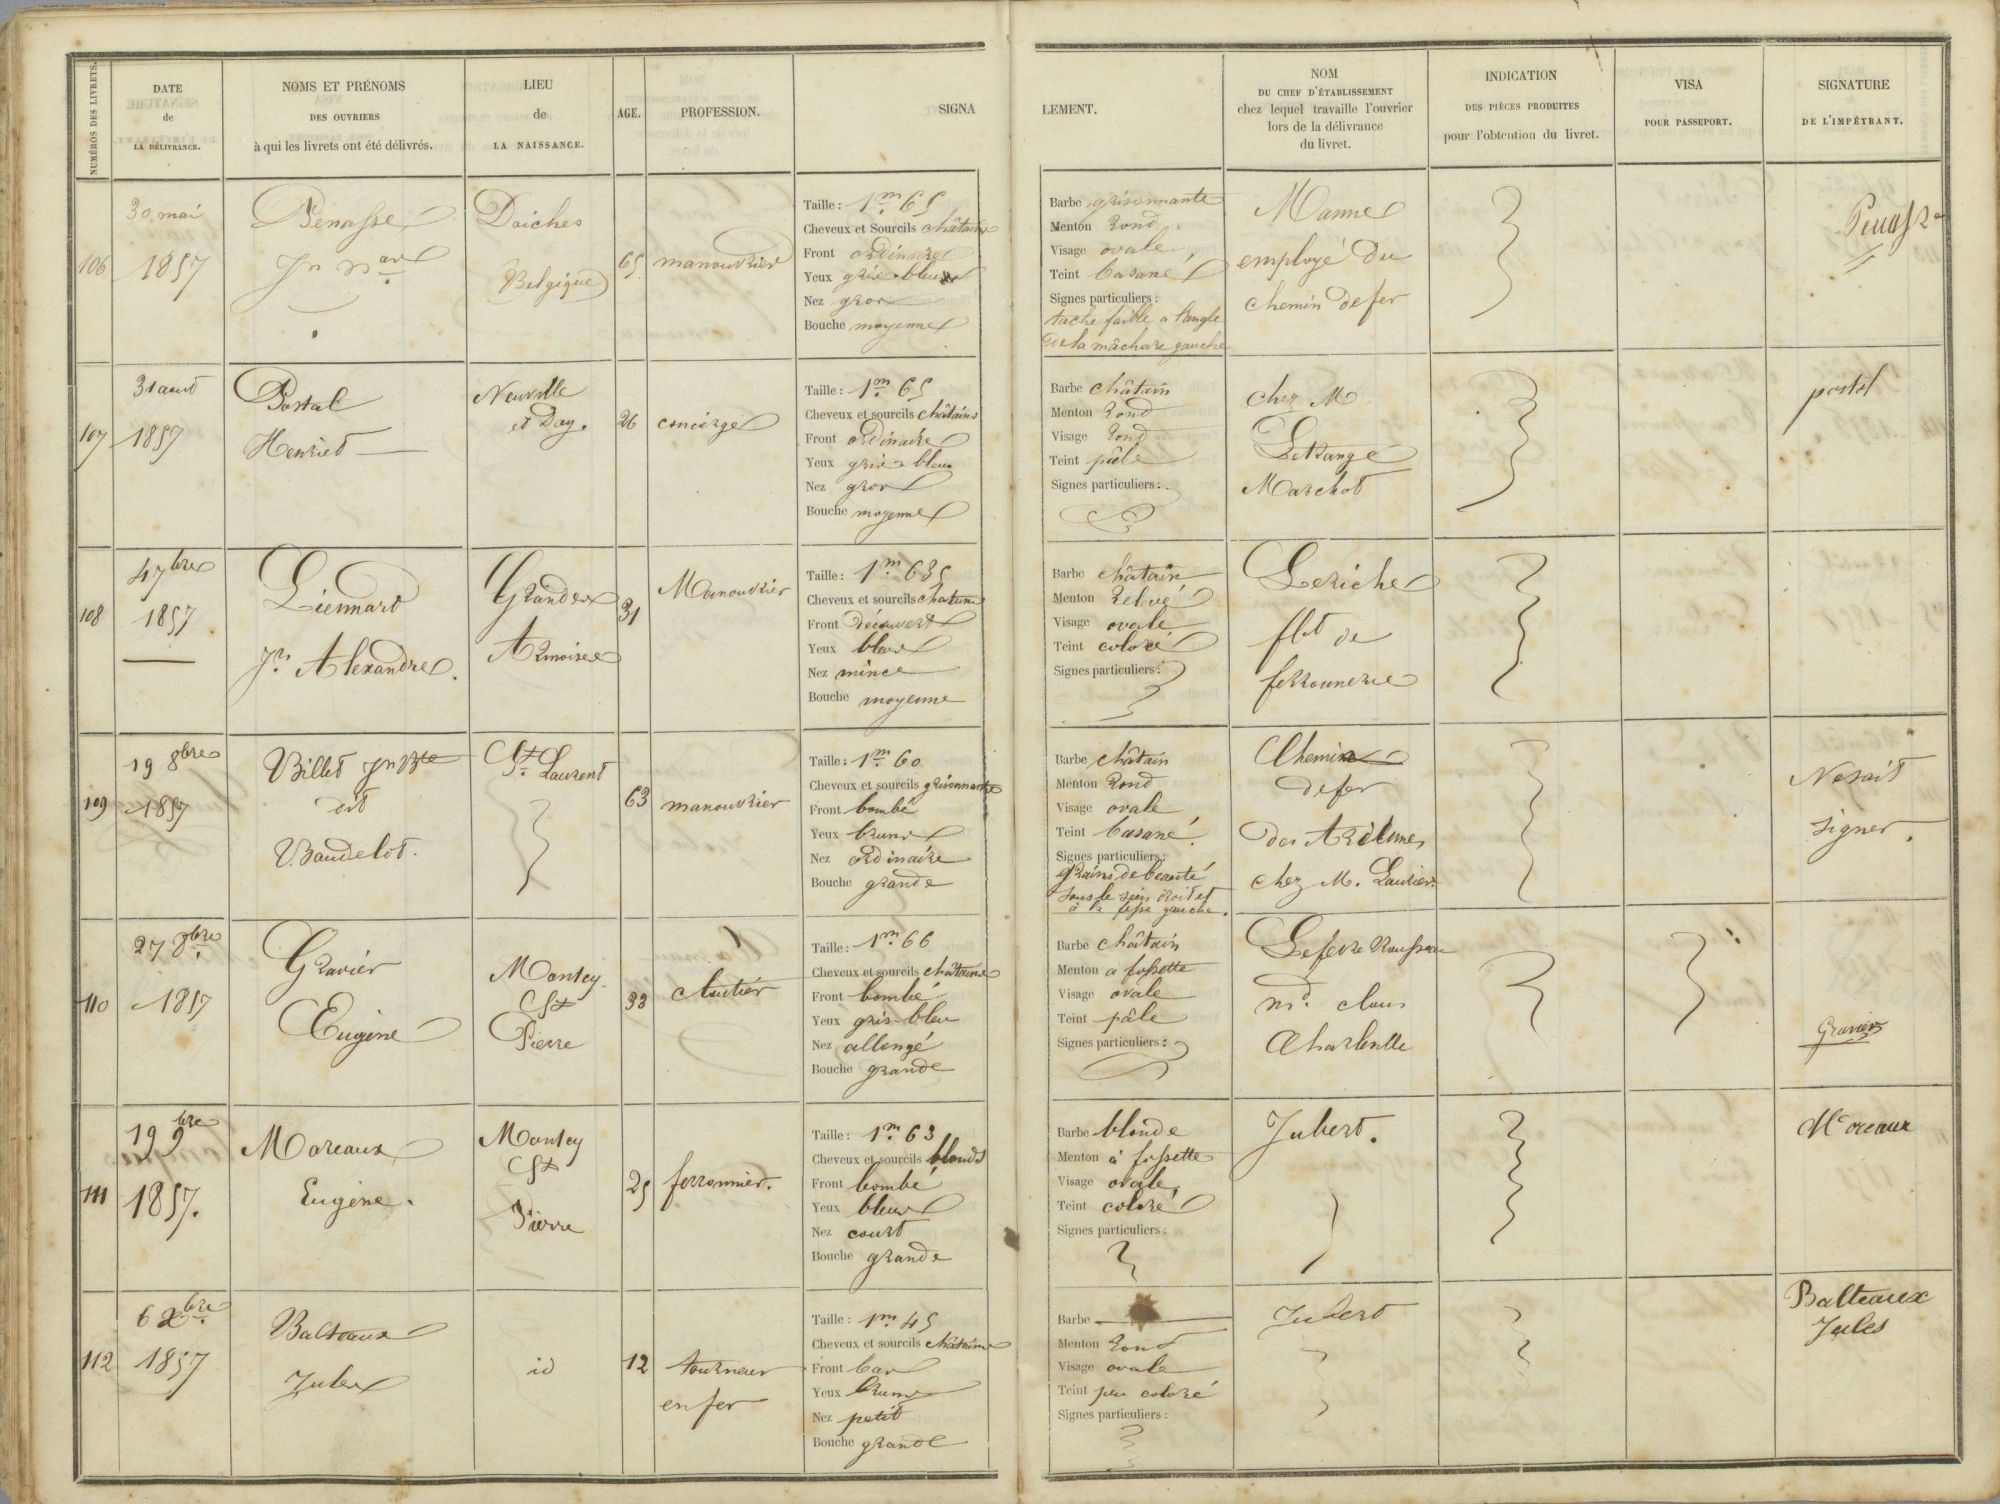 NUMÉROS DES LIVRETS.
DATE
de
LA DÉLIVRANCE.
NOMS ET PRÉNOMS
DES OUVRIERS
à qui les livrets ont été délivrés.
LIEU
de
LA NAISSANCE.
AGE.
PROFESSION.
SIGNA
LEMENT.
NOM
DU CHEF D'ÉTABLISSEMENT
chez lequel travaille l'ouvrier
lors de la délivrance
du livret.
INDICATION
DES PIÈCES PRODUITES
pour l'obtention du livret.
VISA
POUR PASSEPORT.
SIGNATURE
DE L'IMPÉTRANT.
106
30 mai
1857
Penasse
Daiches
Belgique
65
manouvrier
Taille : 1m 65
Cheveux et Sourcils châtains
Front ordinaire
Yeux gris-bleus
Nez gros
Bouche moyenne
Barbe grisonnante
Menton rond
Visage ovale
Teint basané
Signes particuliers :
tache faible a l'angle
de la mâchoire gauche
Manne
employé du
chemin de fer
107
31 aout
1857
Postal
Henriet
Neuville
et Day.
26
concierge
Taille : 1m 65
Cheveux et sourcils châtains
Front ordinaire
Yeux gris-bleus
Nez gros
Bouche moyenne
Barbe châtain
Menton rond
Visage rond
Teint pâle
Signes particuliers :
chez M
Letrange
Marchot
postal
108
4 7bre
1857
Liennard
Jn Alexandre.
Grandes
Armoises
31
Manouvrier
Taille : 1m 635
Cheveux et sourcils chatains
Front découvert
Yeux bleus
Nez mince
Bouche moyenne
Barbe châtain
Menton relevé
Visage ovale
Teint coloré
Signes particuliers :
Leriche
fbt de
ferronnerie
109
19 8bre
1857
Billet Jn Bte
dit
Baudelot.
St Laurent
63
manouvrier
Taille : 1m 60
Cheveux et sourcils grisonnants
Front bombé
Yeux bruns
Nez ordinaire
Bouche grande
Barbe châtain
Menton rond
Visage ovale
Teint basané
Signes particuliers :
grains de beauté
sous le sein droit et
à la fesse gauche.
Chemin
de fer
des Ardennes
chez M. Laurier
Ne sait
signer.
110
27 8bre
1857
Gravier
Eugène
Montcy
St
Pierre
33
cloutier
Taille : 1m 66
Cheveux et sourcils châtains
Front bombé
Yeux gris-bleu
Nez allongé
Bouche grande
Barbe châtain
Menton a fossette
Visage ovale
Teint pâle
Signes particuliers :
Lefevre Rousseau
md clous
Charleville
Gravier
111
19 9bre
1857.
Moreaux
Eugène.
Montcy
St
Pierre
25
ferronnier.
Taille : 1m 63
Cheveux et sourcils blonds
Front bombé
Yeux bleus
Nez court
Bouche grande
Barbe blonde
Menton à fossette
Visage ovale
Teint coloré
Signes particuliers :
Jubert.
Moreaux
112
6 Xbre
1857
Balteaux
Jules
id
12
tourneur
en fer
Taille : 1m 45
Cheveux et sourcils châtains
Front bas
Yeux bruns
Nez petit
Bouche grande
Barbe
Menton rond
Visage ovale
Teint peu coloré
Signes particuliers :
Jubert
Balteaux
Jules